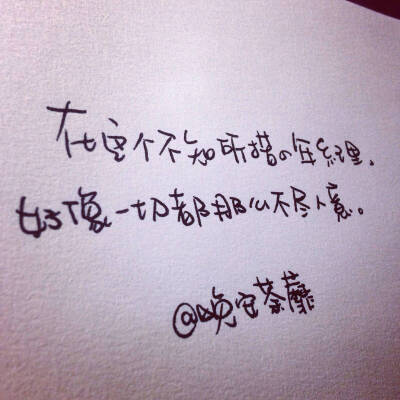 在这个不知所措の年纪里.
好像一切都那么不尽人意。
@晚安荼蘼